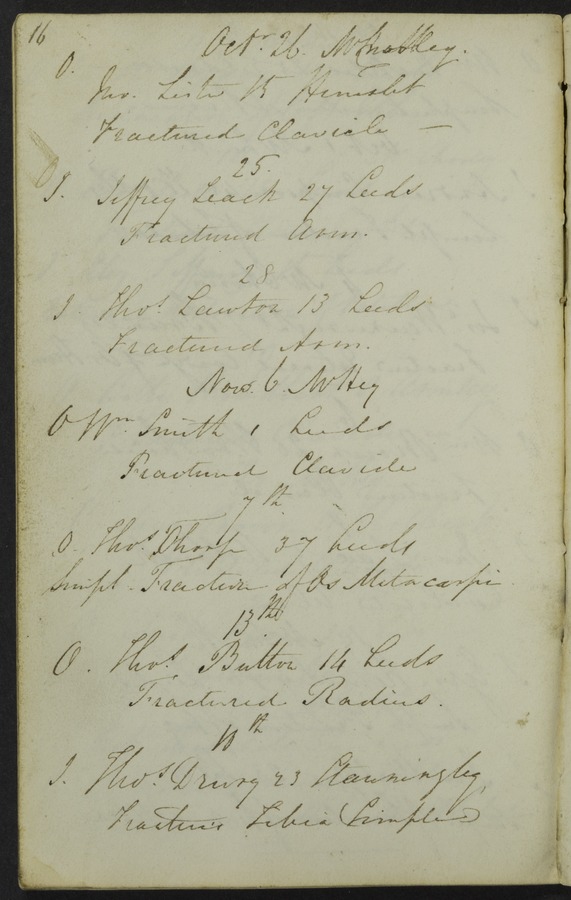 16
Octr. 26. Mr
O.
Jno. Lister 15 Hunslet
Fractured Clavicle —
25.
I. Jeffrey Leach 27 Leeds
Fractured Arm.
28
I Thos. Lawton 13 Leeds
Fractured Arm.
Nov. 6. Mr Hey
O Wm. Smith 1 Leeds
Fractured Clavicle
7th
O. Thos. Thorp 37 Leeds
Simpl. Fracture of Os Metacarpi
13th
O. Thos. Button 14 Leeds
Fractured Radius.
th
I. Thos. Drury 23 Stanningley
Fracture Tibia (Simple)